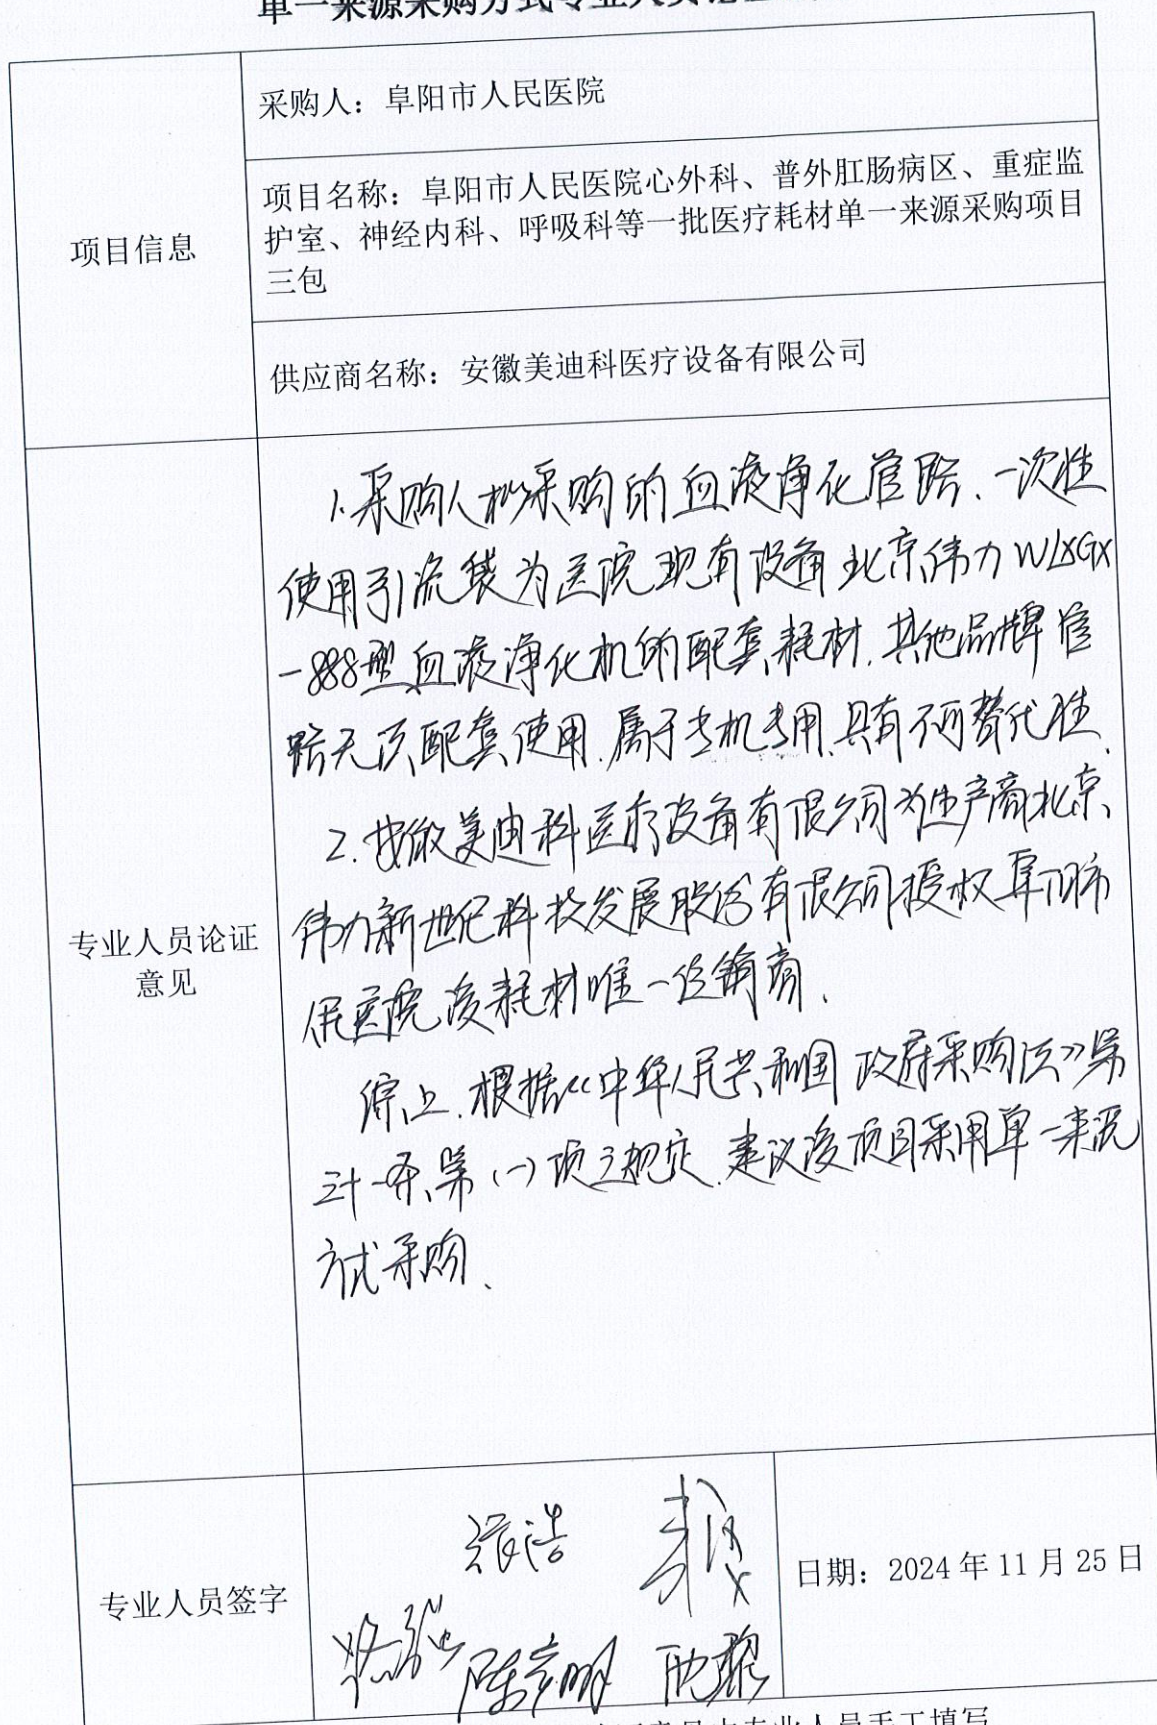 单一来源采购方式专业人员论证
采购人：阜阳市人民医院
项目名称：阜阳市人民医院心外科、普外肛肠病区、重症监
护室、神经内科、呼吸科等一批医疗耗材单一来源采购项目
三包
项目信息
供应商名称：安徽美迪科医疗设备有限公司
1.采购人拟采购的血液净化管路、一次性
使用引流袋为医院现有设备北京伟力WLXGX
-888型血液净化机的配套耗材.其他品牌管
路无法配套使用.属于专机专用.具有不可替代性.
2.安徽美迪科医疗设备有限公司为生产商北京
伟力新世纪科技发展股份有限公司授权阜阳市
人民医院该耗材唯一经销商.
专业人员论证
意见
综上.根据《中华人民共和国政府采购法》第
三十一条、第(一)项之规定.建议该项目采用单一来源
方式采购.
专业人员签字
张浩
陈彦明
日期：2024年11月25日
专业人员手工填写